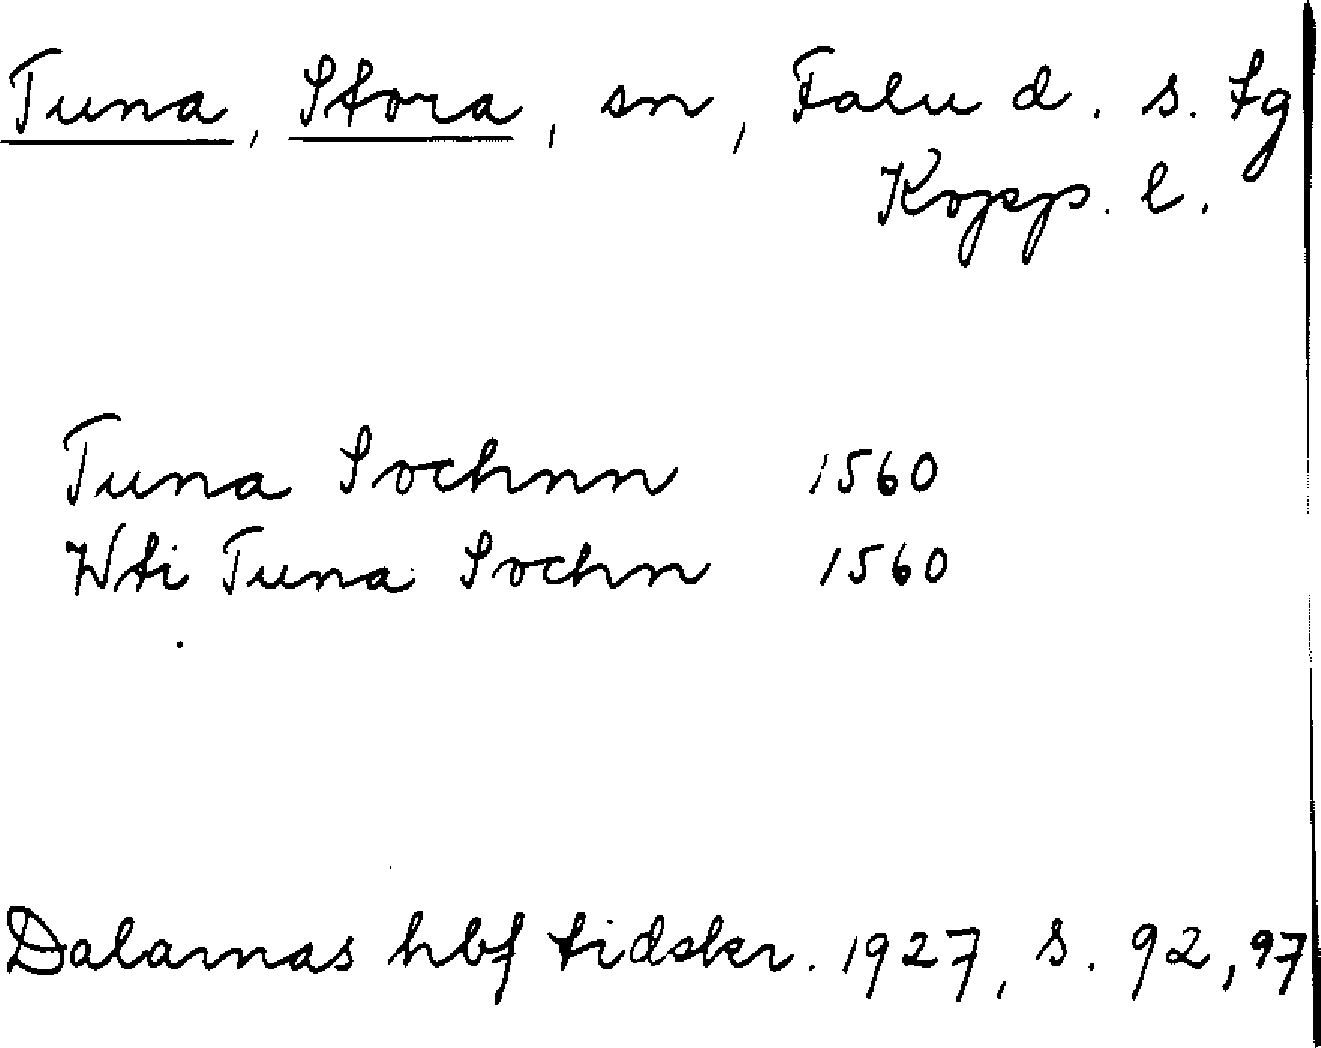 Tuna, Stora, sn, Falu d. s. tg
Kopp. l.
Tuna Sochnn 1560
Wti Tuna Sochn 1560
Dalarnas hbf tidskr. 1927, s. 92, 97